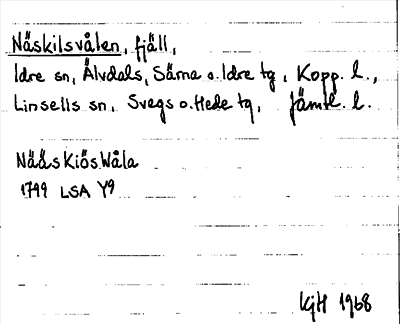 Näskilsvålen, fjäll,
Idre sn, Älvdals, Särna o. Idre tg, Kopp. l.,
Linsells sn, Svegs o. Hede tg, Jämtl. l.
NääsKiösWåla
1799 LSA Y9
KGH 1968